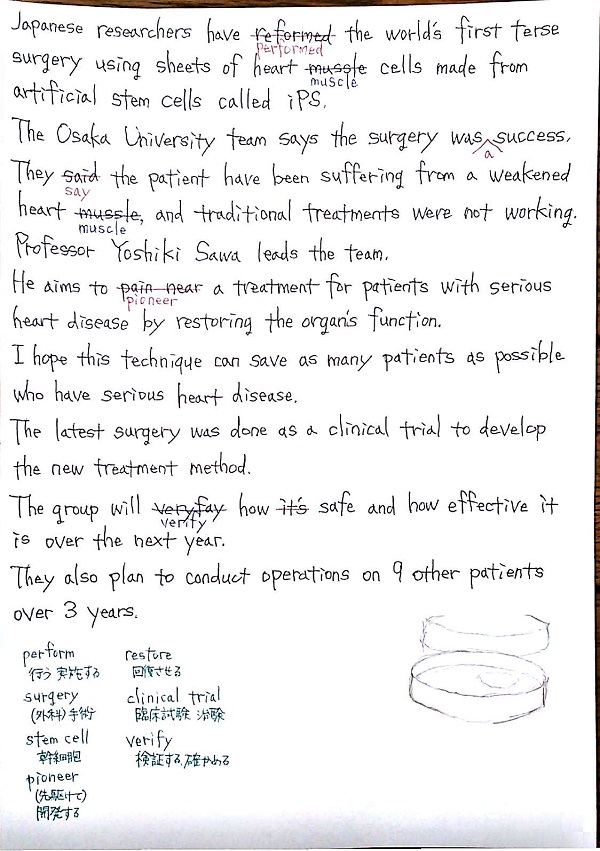 Japanese researchers have reformed the world's first terse
performed
surgery using sheets of heart mussle cells made from
muscle
artificial stem cells called iPS.
The Osaka University team says the surgery was success.
a
They said the patient have been suffering from a weakened
say
heart mussle, and traditional treatments were not working.
muscle
Professor Yoshiki Sawa leads the team.
He aims to pain near a treatment for patients with serious
pioneer
heart disease by restoring the organ's function.
I hope this technique can save as many patients as possible
who have serious heart disease.
The latest surgery was done as a clinical trial to develop
the new treatment method.
The group will veryfay how it's safe and how effective it
verify
is over the next year.
They also plan to conduct operations on 9 other patients
over 3 years.
perform
行う 実施する
surgery
(外科)手術
stem cell
幹細胞
pioneer
(先駆けて)
開発する
restore
回復させる
clinical trial
臨床試験 治験
verify
検証する,確かめる